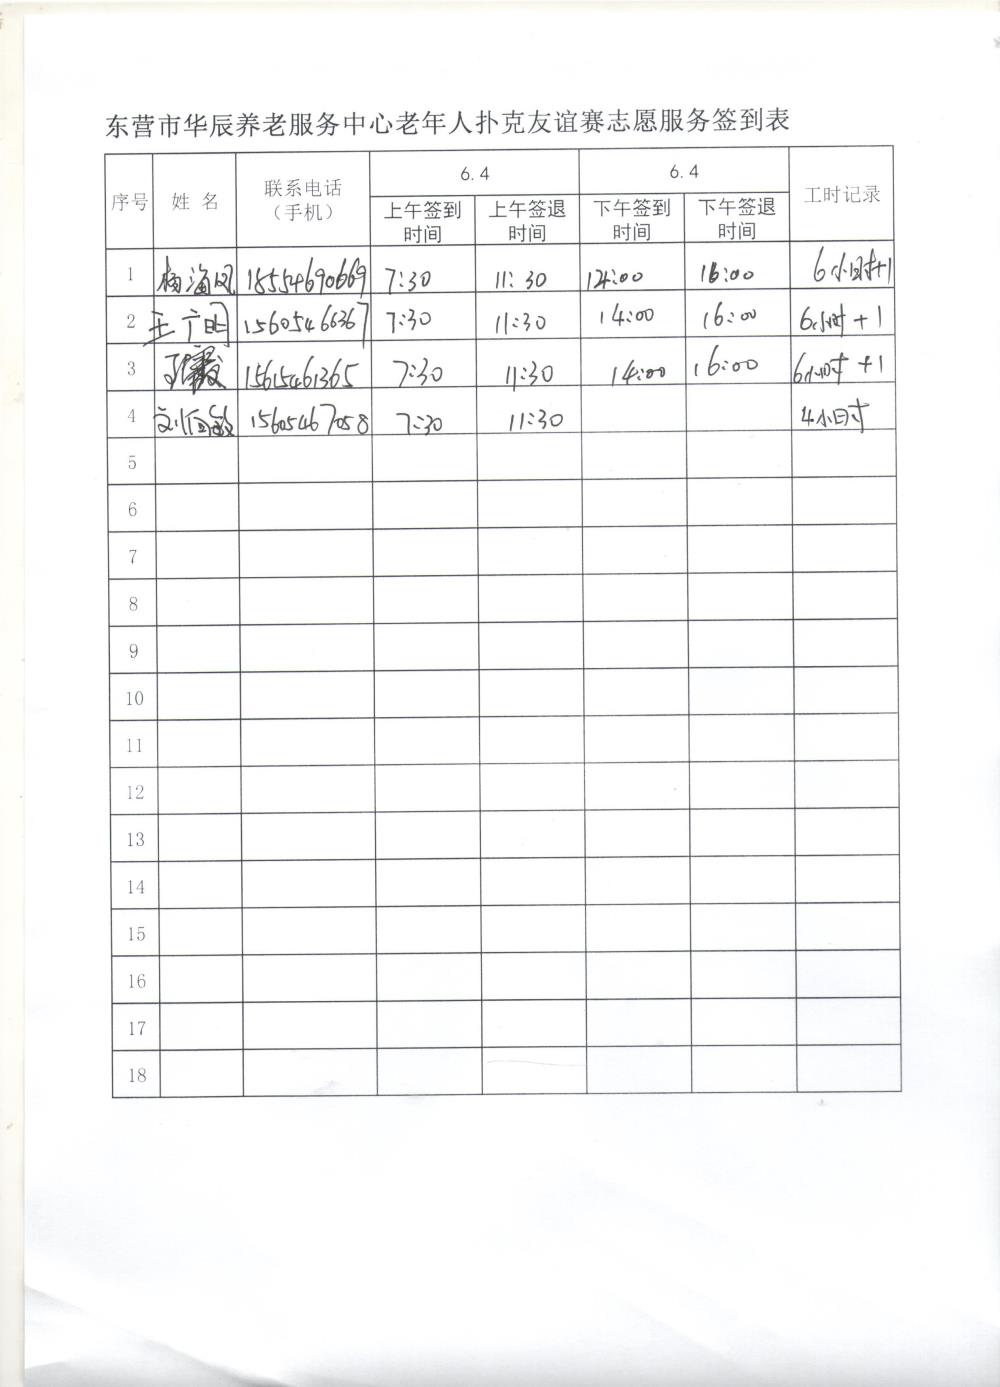 东营市华辰养老服务中心老年人扑克友谊赛志愿服务签到表
序号 姓 名 联系电话（手机） 6.4 6.4 工时记录
上午签到时间 上午签退时间 下午签到时间 下午签退时间
1 杨海凤 18554690669 7:30 11:30 14:00 16:00 6小时+1
2 王广明 15605466367 7:30 11:30 14:00 16:00 6小时+1
3 15615461365 7:30 11:30 14:00 16:00 6小时+1
4 15605467058 7:30 11:30 4小时
5
6
7
8
9
10
11
12
13
14
15
16
17
18